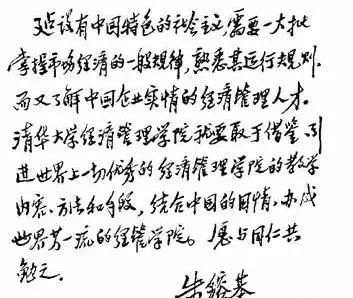 建设有中国特色的社会主义,需要一大批
掌握市场经济的一般规律,熟悉其运行规则,
而又了解中国企业实情的经济管理人才。
清华大学经济管理学院就要敢于借鉴、引
进世界上一切优秀的经济管理学院的教学
内容、方法和手段,结合中国的国情,办成
世界第一流的经管学院。愿与同仁共
勉之。
朱镕基